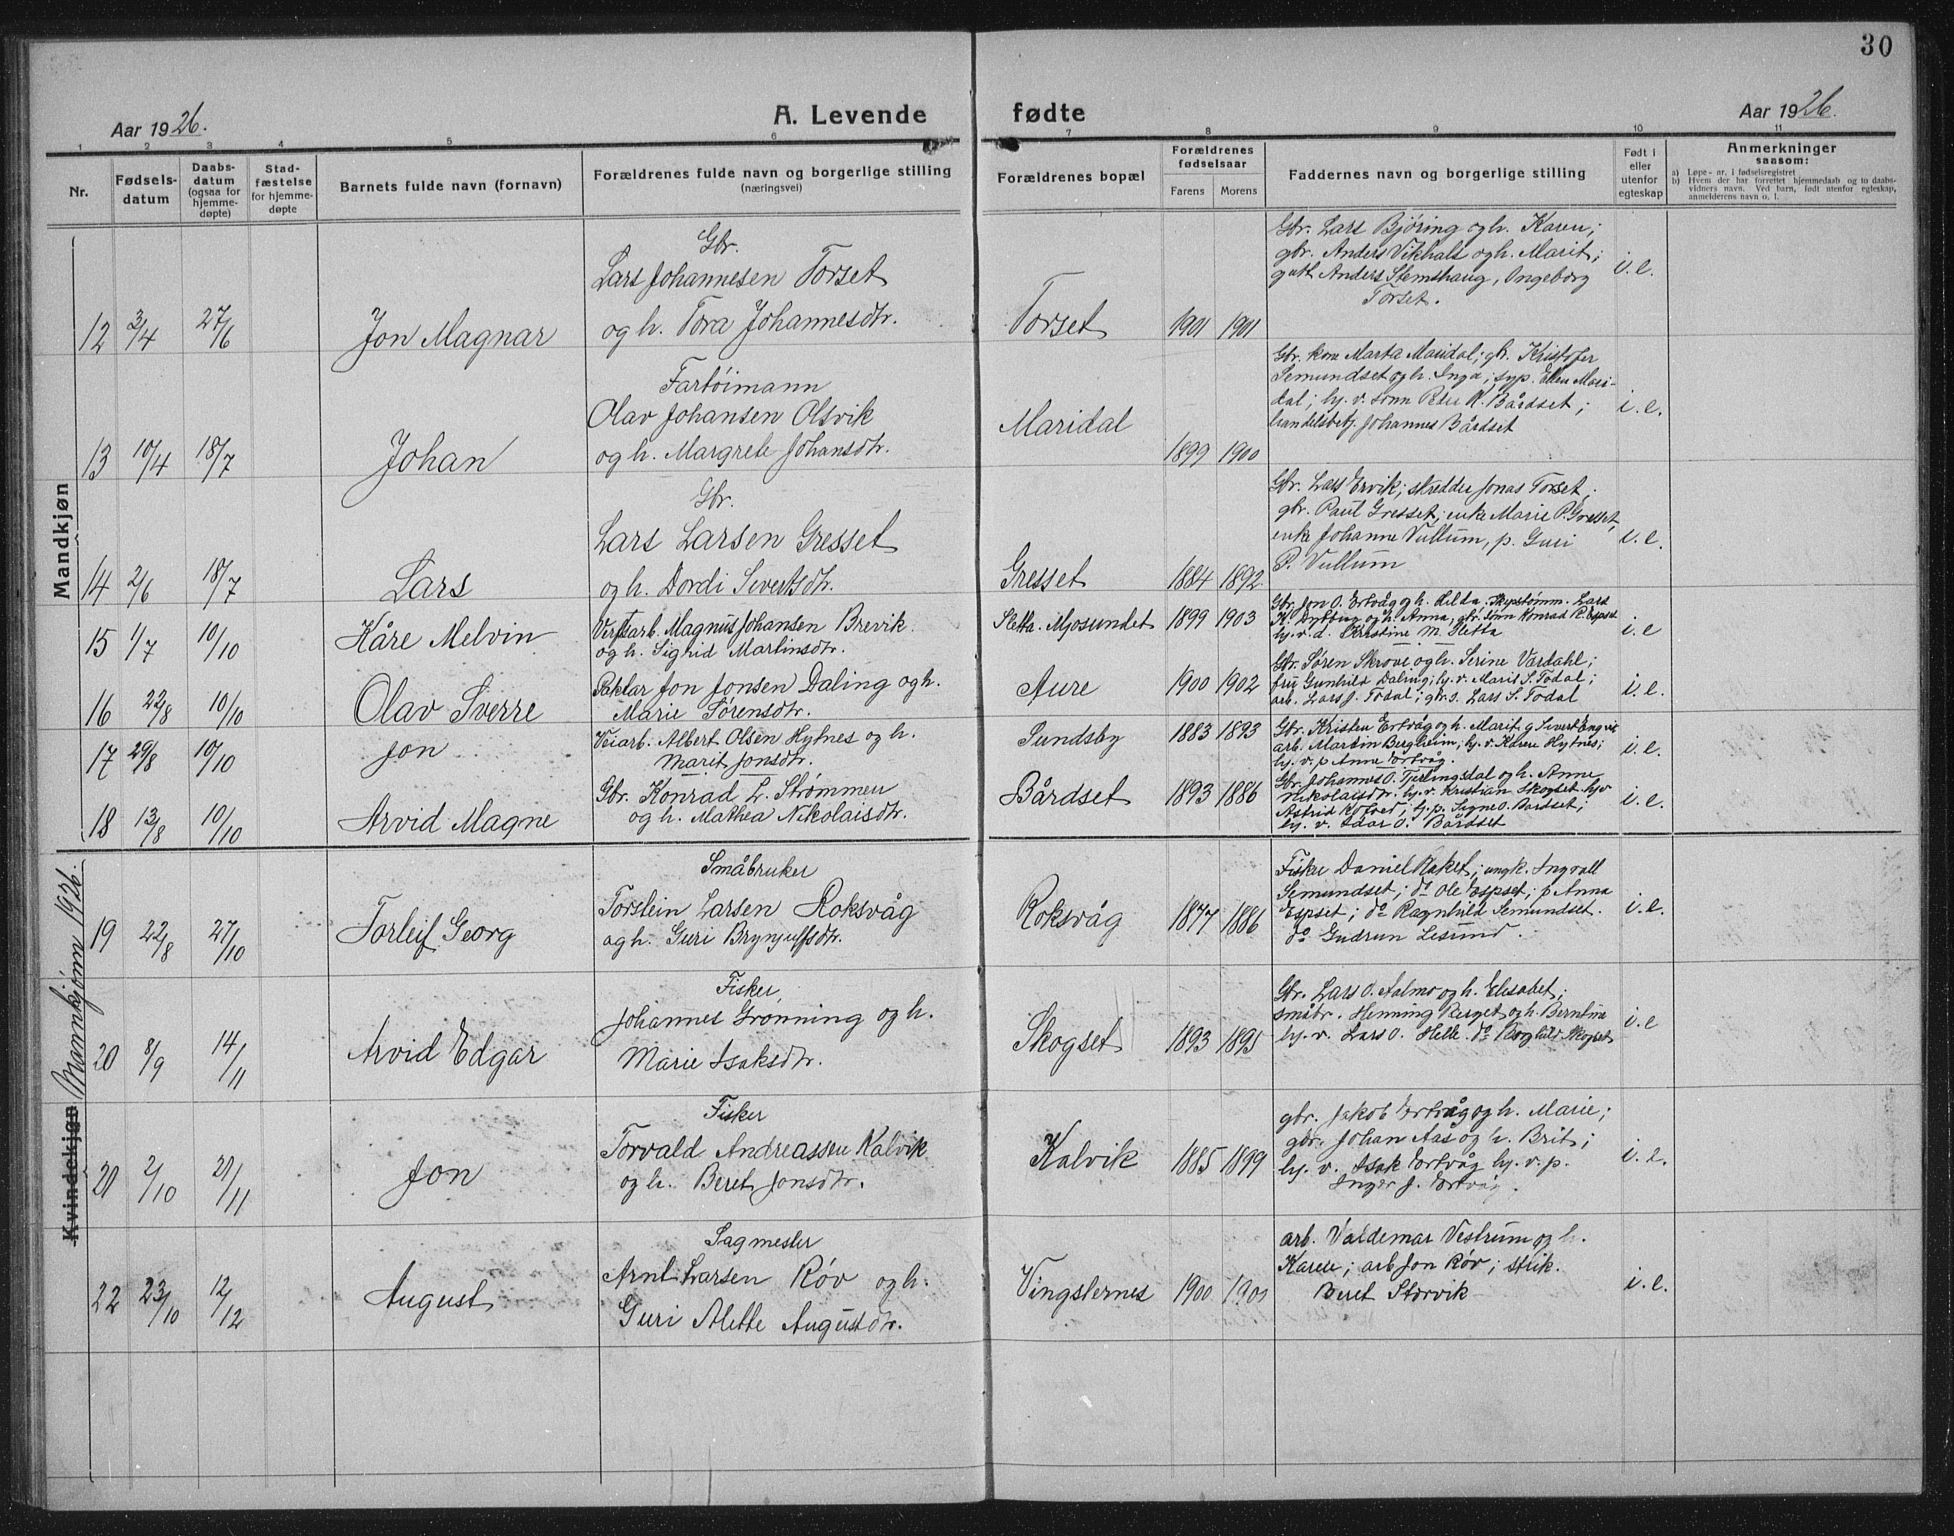 30
Aar 1926.
A. Levende fødte
Aar 1926.
1 2 3 4 5 6 7 8 9 10 11
Nr.
Fødsels-
datum
Daabs-
datum
(ogsaa for
hjemme-
døpte)
Stad-
fæstelse
for hjemme-
døpte
Barnets fulde navn (fornavn)
Forældrenes fulde navn og borgerlige stilling
(næringsvei)
Forældrenes bopæl
Forældrenes
fødselsaar
Farens Morens
Faddernes navn og borgerlige stilling
Født i
eller
utenfor
egteskap
Anmerkninger
saasom:
a) Løpe-nr. i fødselsregistret
b) Hvem der har forrettet hjemmedaab og to daabs-
vidners navn. Ved barn, født utenfor egteskap,
anmelderens navn o. l.
Mandkjøn
12 3/4 27/6 Jon Magnar
Gbr.
Lars Johannesen Torset
og h. Tora Johannesdtr.
Torset 1901 1901
Gbr. Lars Bjøring og h. Karen;
gbr. Anders Vikhals og h. Marit;
gutt Anders Stemshaug, Ingeborg
Torset.
i. e.
13 10/4 18/7 Johan
Fartøimann
Olav Johansen Olsvik
og h. Margrete Johansdtr.
Maridal 1899 1900
Gbr. kone Marta Maridal; gb. Kristofer
Semundset og h. Inga; syp. Ellen Mari-
dal; hj. v. sønn Peder K. Bårdset;
handelsbetj. Johannes Bårdset
i. e.
14 2/6 18/7 Lars
Gbr.
Lars Larsen Gresset
og h. Dordi Sivertsdtr.
Gresset 1884 1892
Gbr. Lars Ervik; skredder Jonas Torset;
gbr. Paul Gresset; enke Marie P. Gresset,
enke Johanne Vullum, p. Guri
P. Vullum
i. e.
15 1/7 10/10 Kåre Melvin
Verftsarb. Magnus Johansen Brevik
og h. Sigrid Martinsdtr.
Sletta. Mjosundet 1899 1903
Gbr. Jon O. Ertvåg og h. Hilda. Lars
K. og h. Anna, gbr. sønn Konrad R. Espset
hj. v. d. Kristine M. Sletta
i. e
16 22/8 10/10 Olav Sverre
Paktar Jon Jonsen Daling og h.
Marie Sørensdtr.
Aure 1900 1902
Gbr. Søren Skrove og h. Serine Vardahl;
fru Gunhild Daling; hj. v. Marit S. Todal;
arb. Lars J. Todal; gbr. s. Lars S. Todal
i. e.
17 29/8 10/10 Jon
Veiarb. Albert Olsen Hytnes og h.
Marit Jonsdtr.
Sundsby 1883 1893
Gbr. Kristen Ertvåg og h. Marit, g Sivert Engvik
arb. Martin Bergheim; hj. v. Karen Hytnes;
hj. v. p Anne Ertvåg.
i. e.
18 13/8 10/10 Arvid Magne
Gbr. Konrad L. Strømmen
og h. Mathea Nikolaisdtr.
Bårdset 1893 1886
Gbr. Johannes O. Tjerlingsdal og h. Anne
Nikolaisdtr. hj. v. Kristian Skogset hj v
Astrid; hj. p. Signe O. Bårdset;
hj. v. Idar O. Bårdset
i. e.
Kvindekjøn Mannkjønn 1926.
19 22/8 27/10 Torleif Georg
Småbruker
Torstein Larsen Roksvåg
og h. Guri Brynjulfsdtr.
Roksvåg 1877 1886
Fisker Daniel Raket; ungk. Ingvall
Semundset; do Ole Espset; p Anna
Espset; do Ragnhild Semundset.
do Gudrun Lesund.
i. e.
20 8/9 14/11 Arvid Edgar
Fisker
Johannes Grønning og h.
Marie Isaksdtr.
Skogset 1893 1895
Gbr. Lars O. Aalmo og h. Elisabet;
småbr. Henning Berget og h. Berntine
hj. v. Lars O. Helle. do Skogset
i. e
20 2/10 21/11 Jon
Fisker
Torvald Andreassen Kalvik
og h. Beret Jonsdtr.
Kalvik 1885 1899
gbr. Jakob Ertvåg og h. Marie;
gbr. Johan Aas og h. Brit;
hj. v. Isak Ertvåg hj. v. p.
Inger J. Ertvåg.
i. e.
22 23/10 12/12 August
Sagmester
Arnt Larsen Røv og h.
Guri Alette Augustdtr.
Vingsternes 1900 1901
arb. Valdemar Vestrum og h.
Karen; arb Jon Røv; strik.
Beret Storvik
i. e.